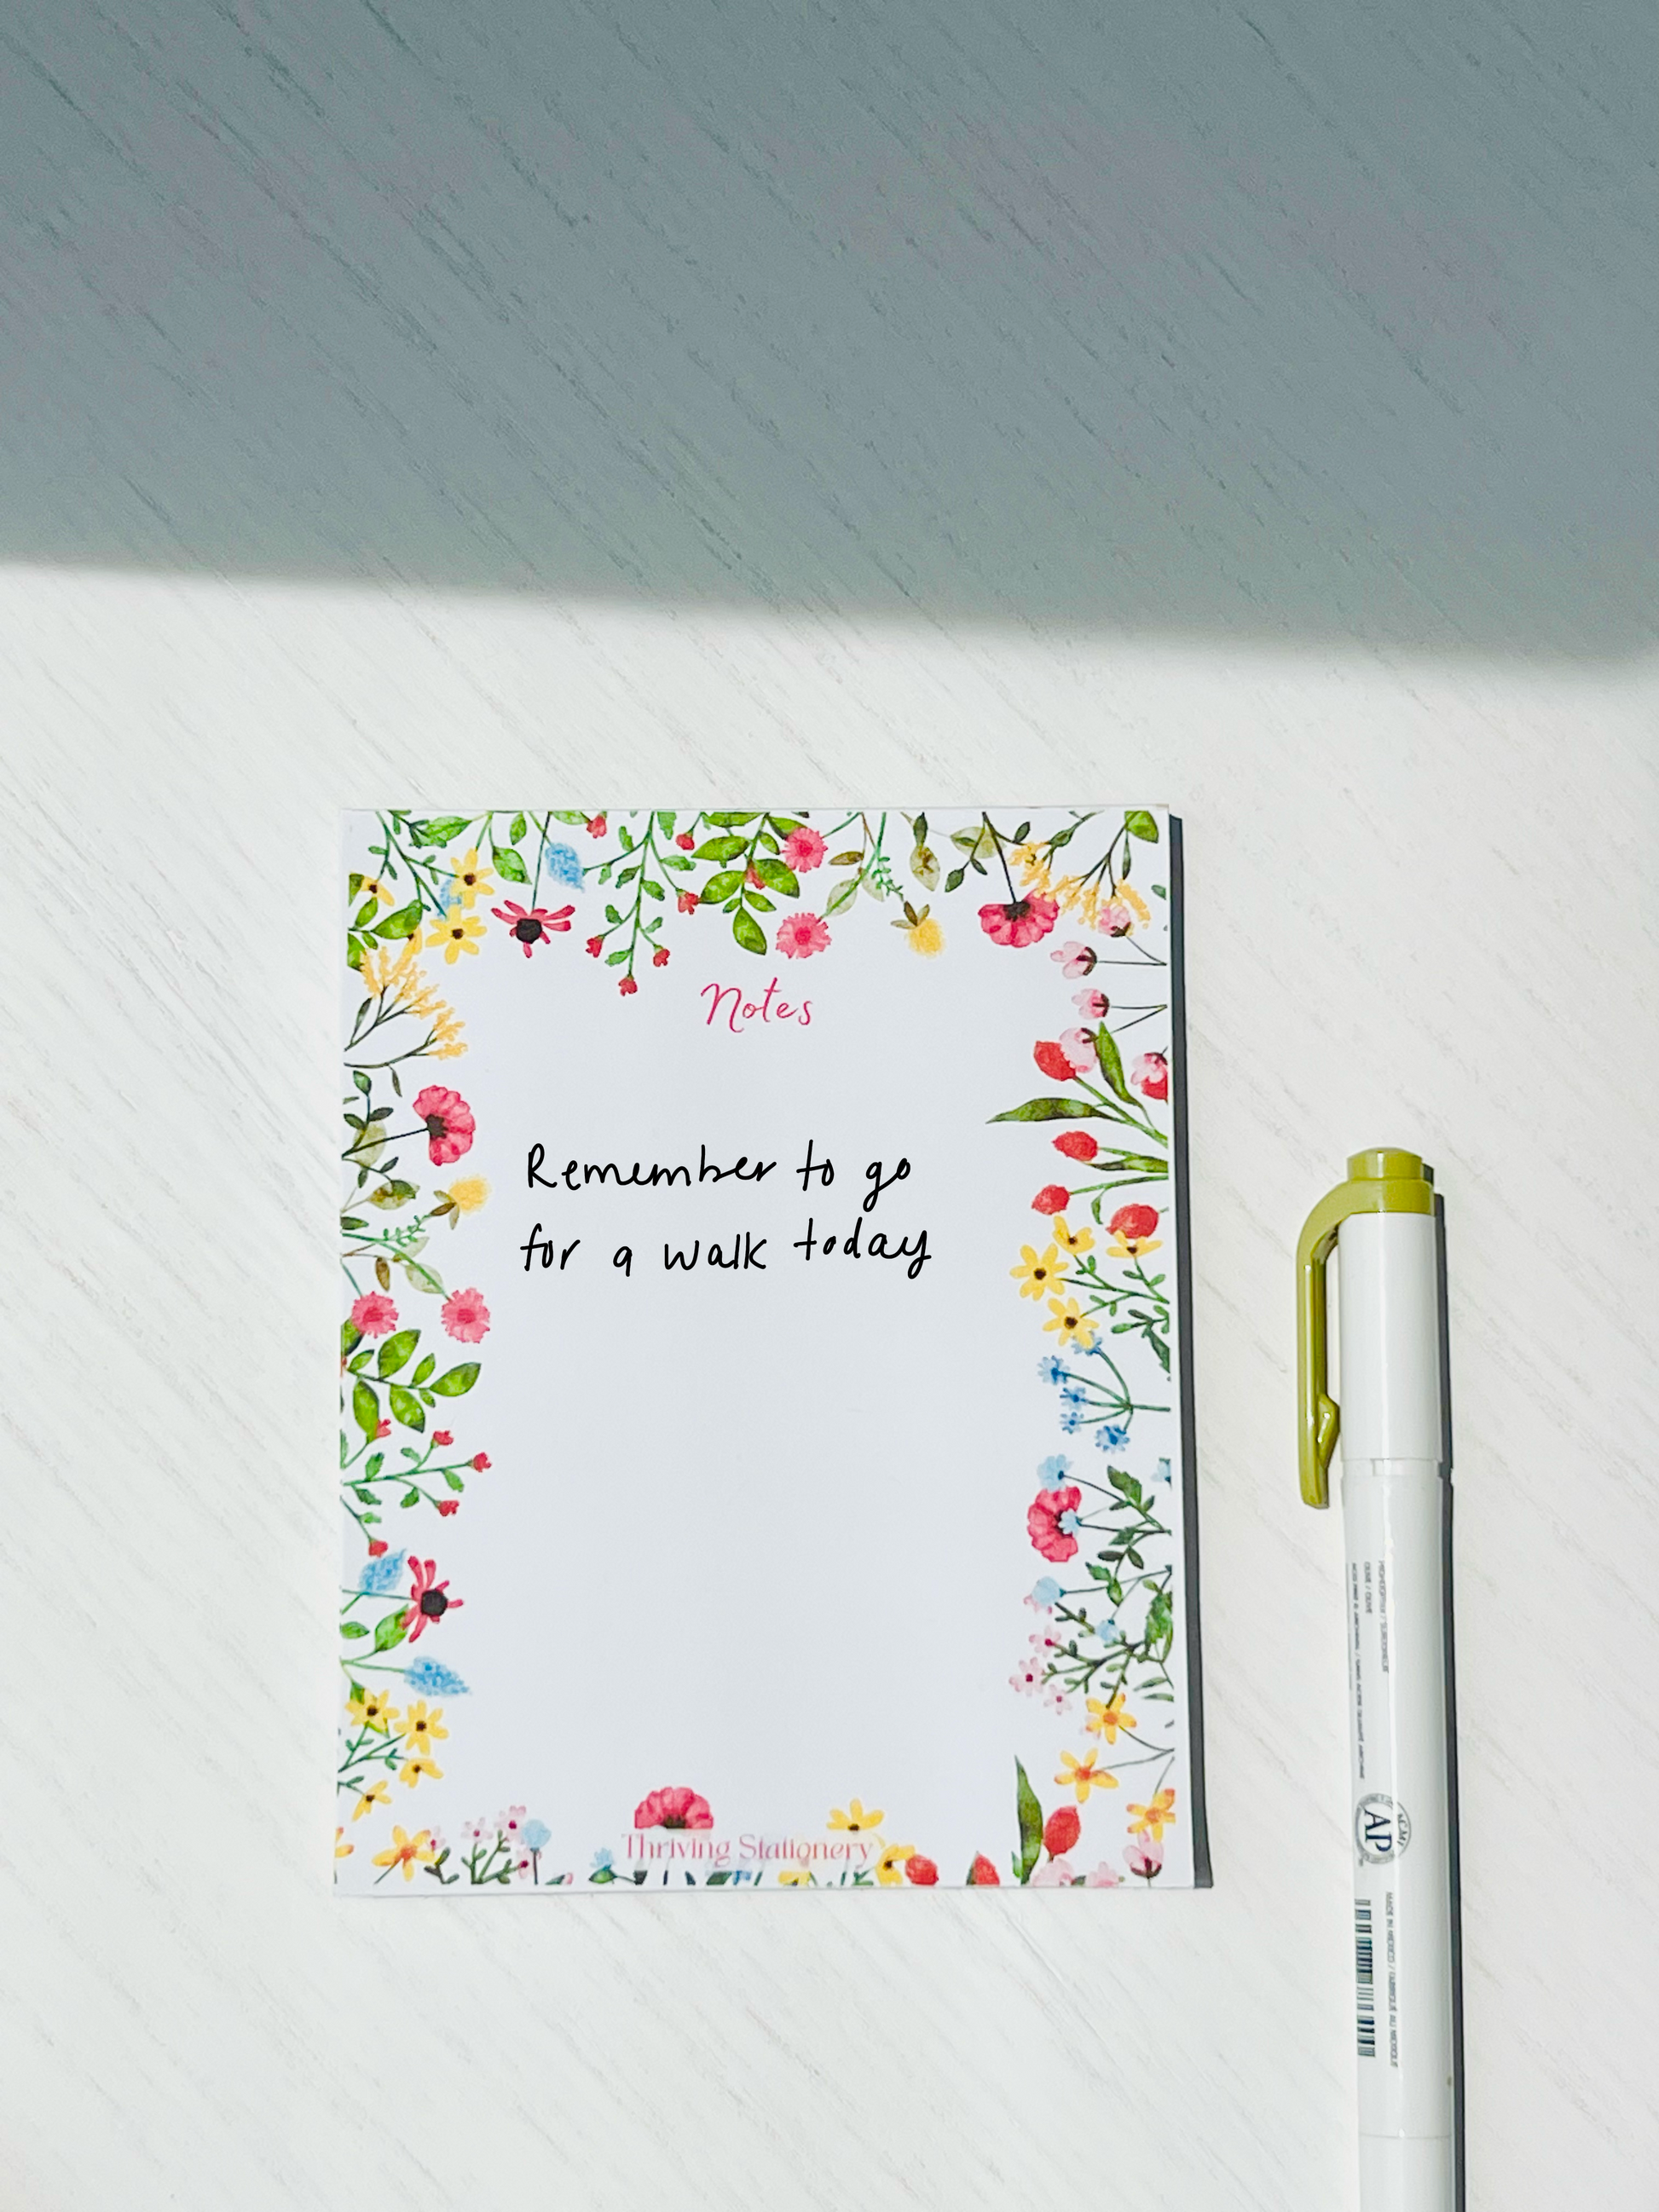 Notes
Remember to go
for a walk today
Thriving Stationery
AP